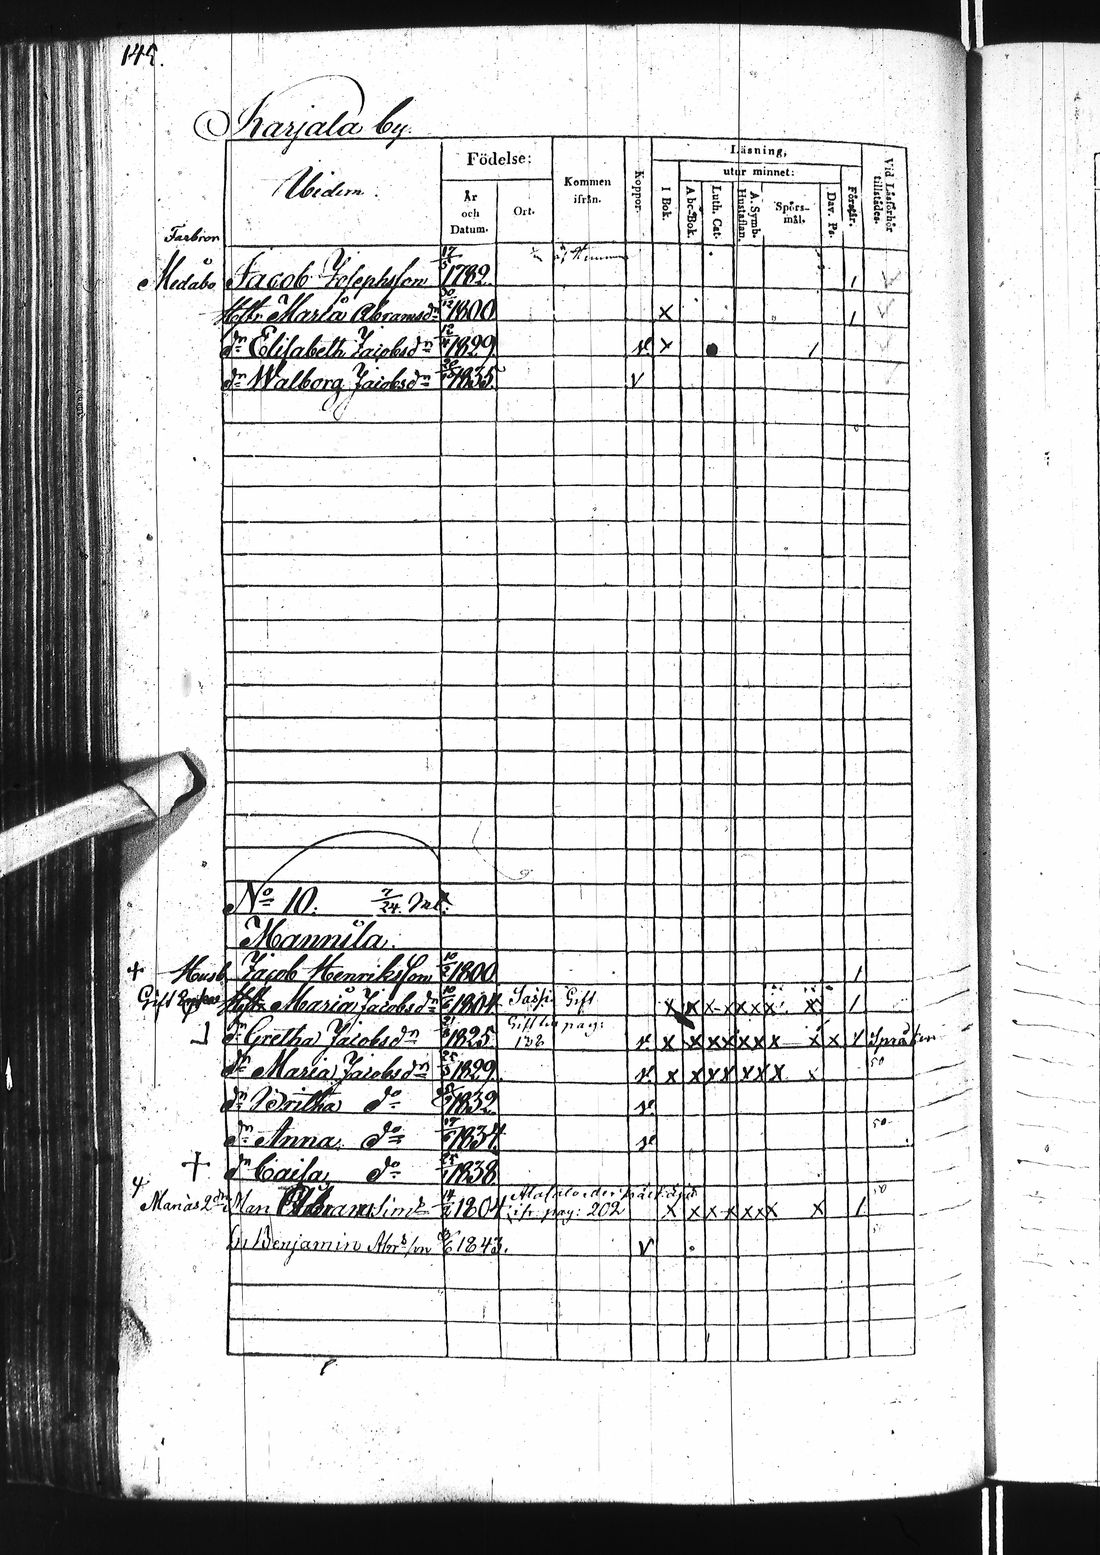 145.
Karjala by.
Videm.
Födelse:
År och Datum.
Ort.
Kommen ifrån.
Koppor.
Läsning,
utur minnet:
I Bok.
Abc-Bok.
Luth. Cat.
A. Symb. Hustaflan.
Spörs-mål.
Dav. Ps.
Förstår.
Vid Läsförhör tillstädes.
Farbron
Medåbo Jacob Josephsson 17/5 1782. 1
Hstr Maria Abramsdr 1800 x 1
dr Elisabeth Jacobsdr 1829 v x 1
dr Walborg Jacobsdr 1835 v
No 10. 7/24 Mtl.
Mannila.
+ Husb. Jacob Henriksson 1800 1
Gift Hstr Maria Jacobsdr 1804 Gift x x x x x x x x 1
dr Gretha Jacobsdr 1825 Gift pag: 138 v x x x x x x x x x
dr Maria Jacobsdr 1829 v x x x x x x x x 50
dr Britha do 1832 v
dr Anna do 1834 v 50
+ dr Caisa do 1838
Marias 2dre Man Abram Sims 14 1804 ifr pag: 202 x x x x x x x x 1 50
Benjamin Abrs/on 1843. v